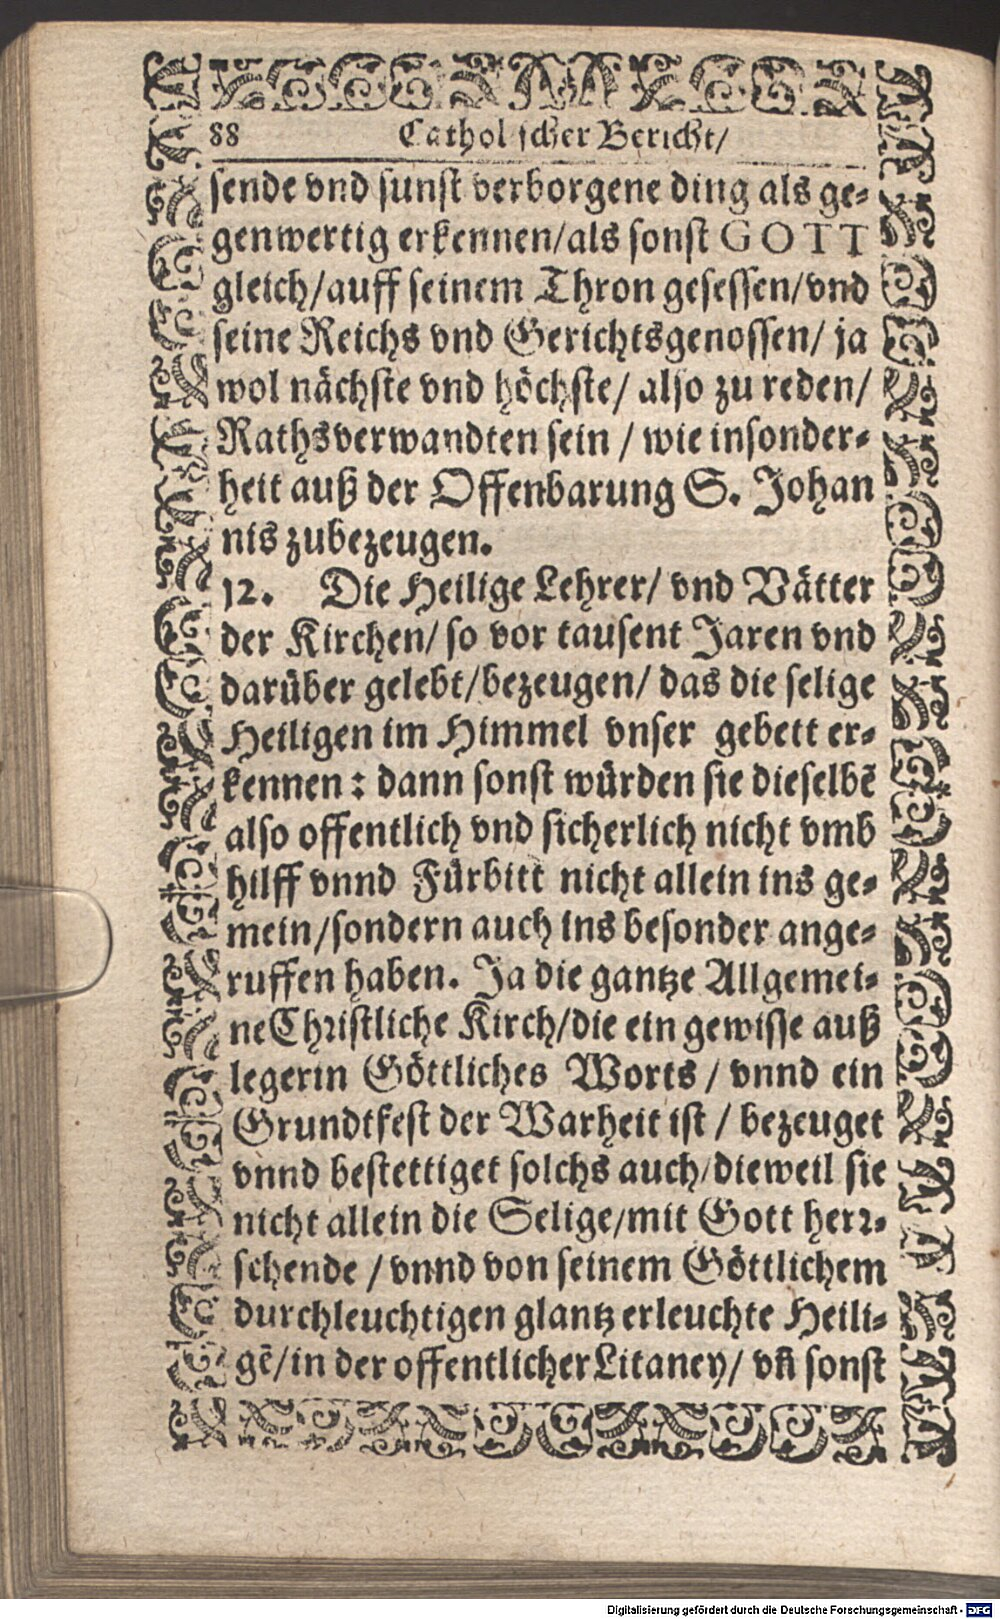 88 Catholischer Bericht/
sende vnd sunst verborgene ding als ge-
genwertig erkennen/als sonst GOTT
gleich/auff seinem Thron gesessen/vnd
seine Reichs vnd Gerichtsgenossen/ ja
wol nächste vnd höchste/ also zu reden/
Rathsverwandten sein / wie insonder-
heit auß der Offenbarung S. Johan
nis zubezeugen.
12. Die Heilige Lehrer/ vnd Vätter
der Kirchen/ so vor tausent Jaren vnd
darüber gelebt/bezeugen/ das die selige
Heiligen im Himmel vnser gebett er-
kennen: dann sonst würden sie dieselbē
also offentlich vnd sicherlich nicht vmb
hilff vnnd Fürbitt nicht allein ins ge-
mein/sondern auch ins besonder ange-
ruffen haben. Ja die gantze Allgemei-
ne Christliche Kirch/die ein gewisse auß
legerin Göttliches Worts / vnnd ein
Grundtfest der Warheit ist / bezeuget
vnnd bestettiget solchs auch/dieweil sie
nicht allein die Selige/mit Gott herr-
schende / vnnd von seinem Göttlichem
durchleuchtigen glantz erleuchte Heili-
gē/in der offentlicher Litaney/ vn̄ sonst
Digitalisierung gefördert durch die Deutsche Forschungsgemeinschaft - DFG